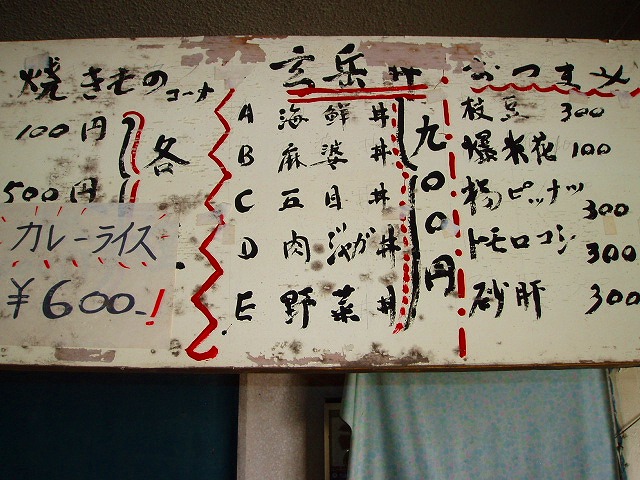 焼きものコーナ
100円
500円
各
カレーライス
¥600-!
玄岳丼
A 海鮮丼
B 麻婆丼
C 五目丼
D 肉ジャガ丼
E 野菜丼
九00円
おつまみ
枝豆 300
爆米花 100
ピーナッツ 300
トモロコシ 300
砂肝 300